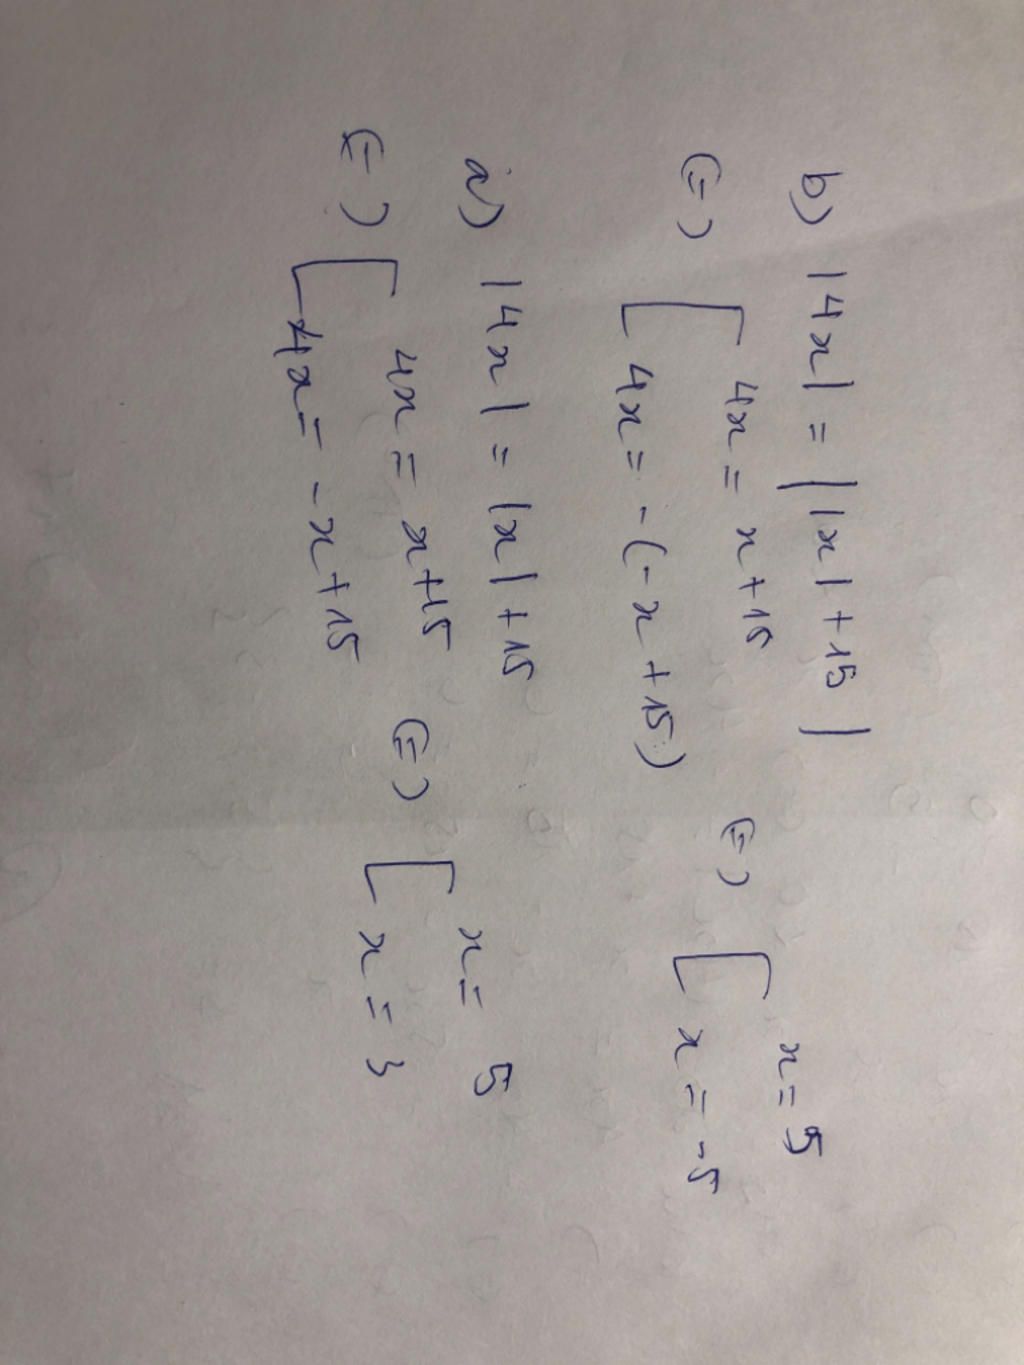 b) |4x| = ||x| + 15|
(=) [ 4x = x + 15 (=) [ x = 5
4x = - (-x + 15) x = -5
a) |4x| = |x| + 15
(=) [ 4x = x + 15 (=) [ x = 5
4x = - x + 15 x = 3